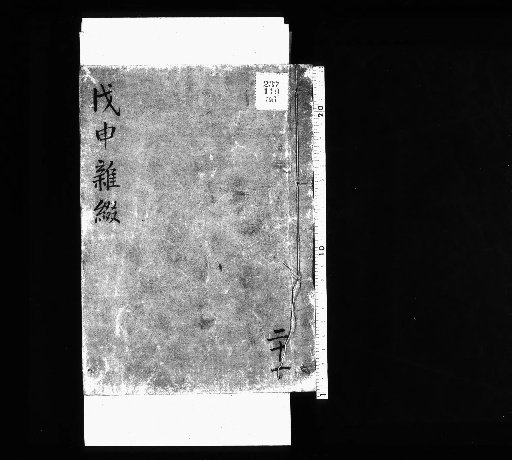 戊申雜綴
二十一
20
10
1